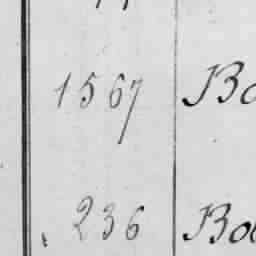 1567 Bo
236 Bo